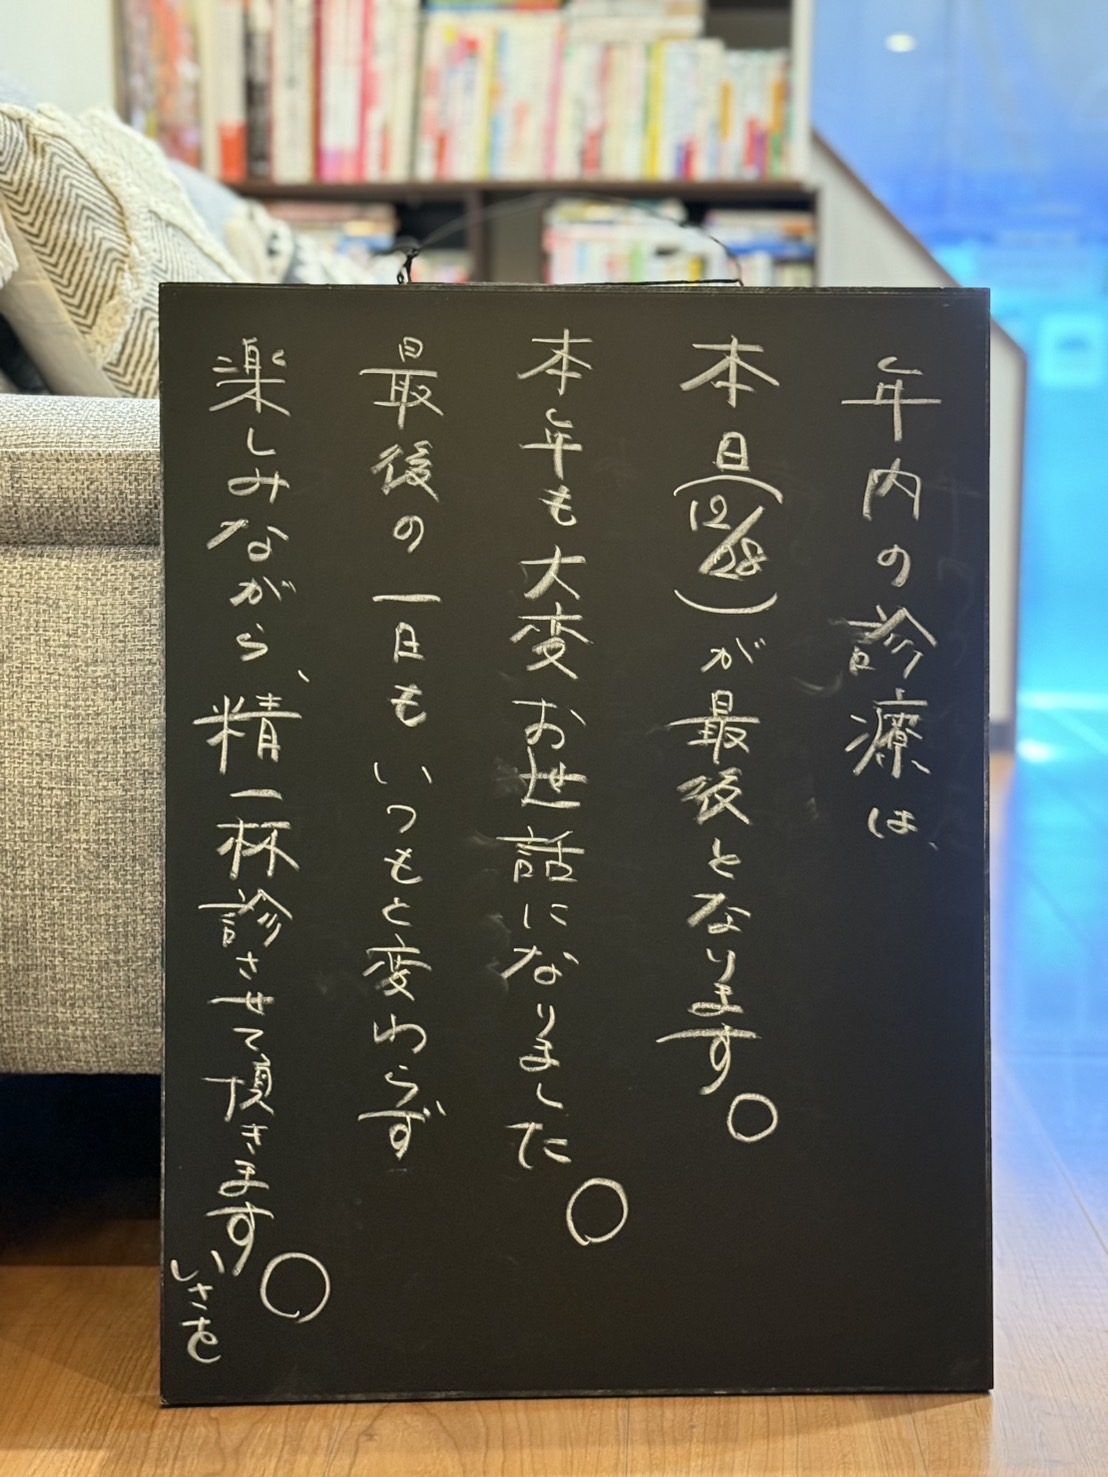 年内の診療は、
本日(12/28)が最後となります。
本年も大変お世話になりました。
最後の一日もいつもと変わらず
楽しみながら、精一杯診させて頂きます。
いさを